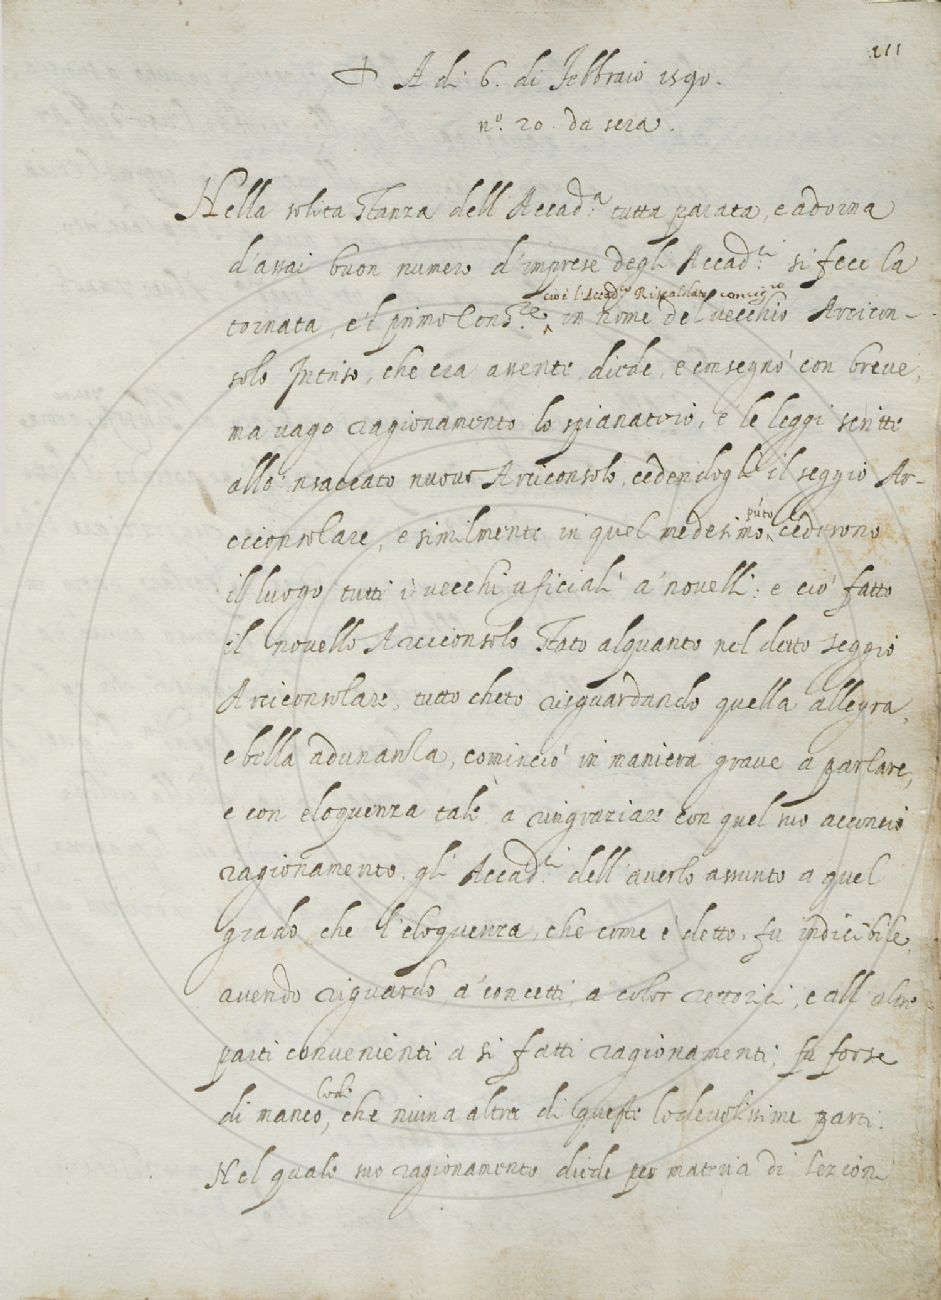 111
A dì 6. di Febbraio 1590.
n.º 20 da sera.
Nella solita stanza dell'Accad.ª tutta parata, e adorna
d'assai buon numero d'imprese degli Accad.ⁱ si fece la
cioè l'Accad.º Riscaldato consig.ro
tornata, e'l primo Cons.re in nome del vecchio Arcicon-
solo Intriso, che era assente, diede, e consegnò con breve,
ma vago ragionamento lo spianatoio, e le leggi scritte
allo 'nsaccato nuovo Arciconsolo, cedendogli il seggio Ar-
puto
ciconsolare, e similmente in quel medesimo, cederono
il luogo tutti i vecchi uficiali a' novelli: e ciò fatto
il novello Arciconsolo stato alquanto nel detto seggio
Arciconsolare, tutto cheto risguardando quella allegra,
e bella adunanza, cominciò in maniera grave a parlare,
e con eloquenza tale à ringraziare con quel suo acconcio
ragionamento gli Accad.ⁱ dell'averlo assunto a quel
grado che l'eloquenza, che come è detto, fu indicibile,
avendo riguardo a' concetti, a color rettorici, e all'altre
parti convenienti a si fatti ragionamenti, fu forse
lode
di manco, che niuna altra di queste lodevolissime parti.
Nel quale suo ragionamento diede per materia di lezioni